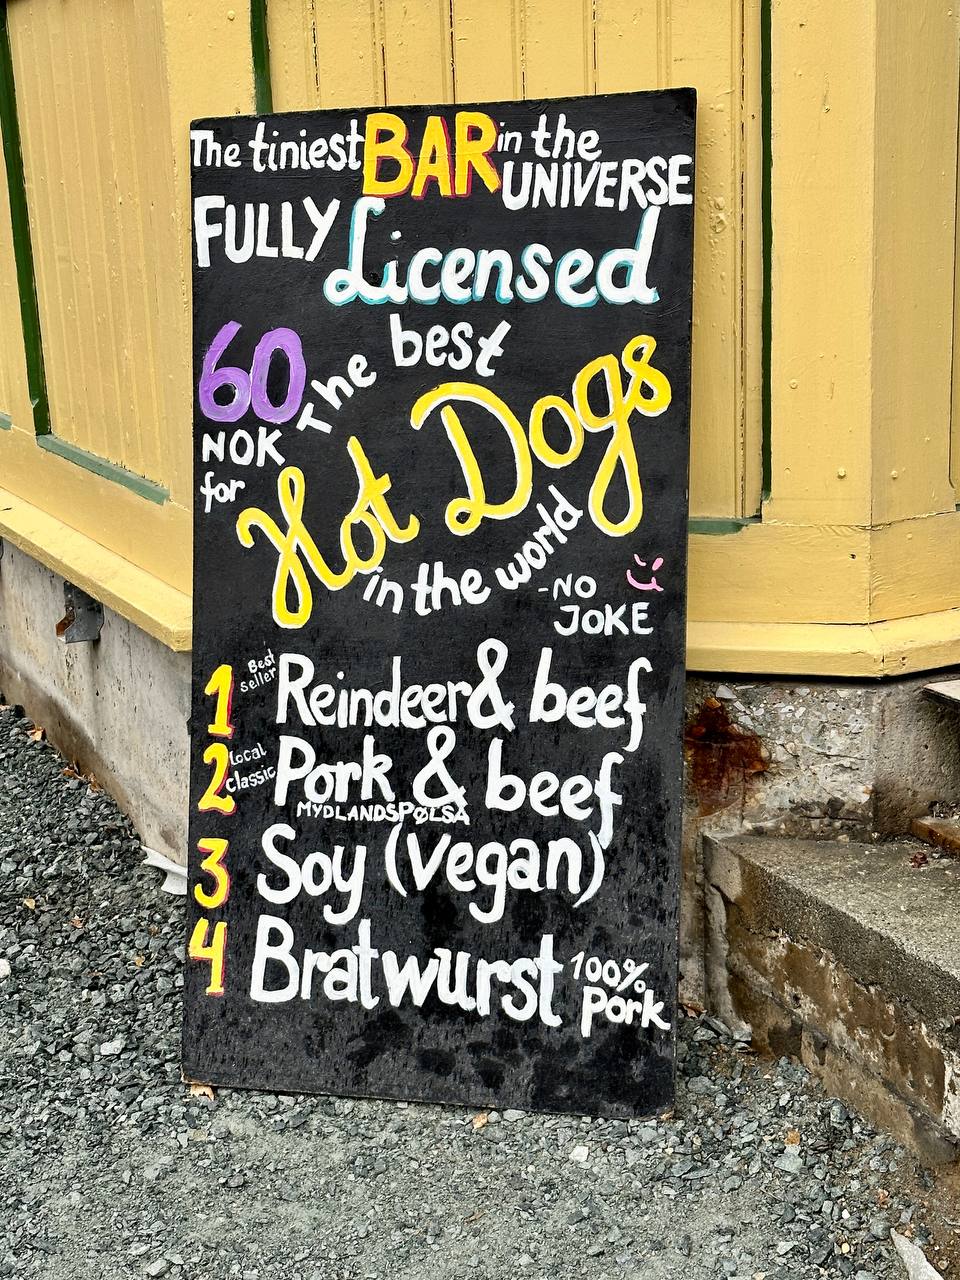 The tiniest BAR in the
UNIVERSE
FULLY Licensed
60
NOK
for
The best
Hot Dogs
in the world
-NO
JOKE
1 Best
seller Reindeer & beef
2 Local
Classic Pork & beef
MYDLANDSPØLSA
3 Soy (vegan)
4 Bratwurst 100%
Pork